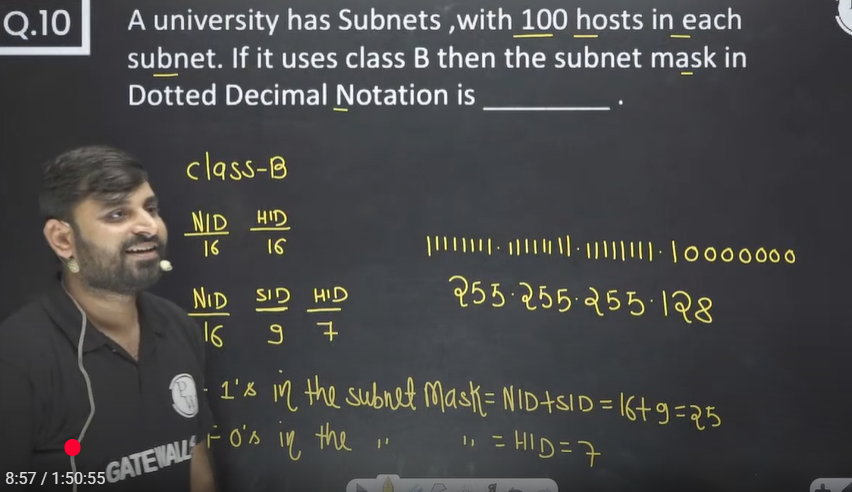 Q.10
A university has Subnets ,with 100 hosts in each
subnet. If it uses class B then the subnet mask in
Dotted Decimal Notation is __________ .
class-B
NID HID
16 16
11111111.11111111.11111111.10000000
NID SID HID
16 9 7
255.255.255.128
- 1's in the subnet Mask = NID+SID = 16+9=25
- 0's in the " " = HID = 7
GATE WALLS
8:57 / 1:50:55